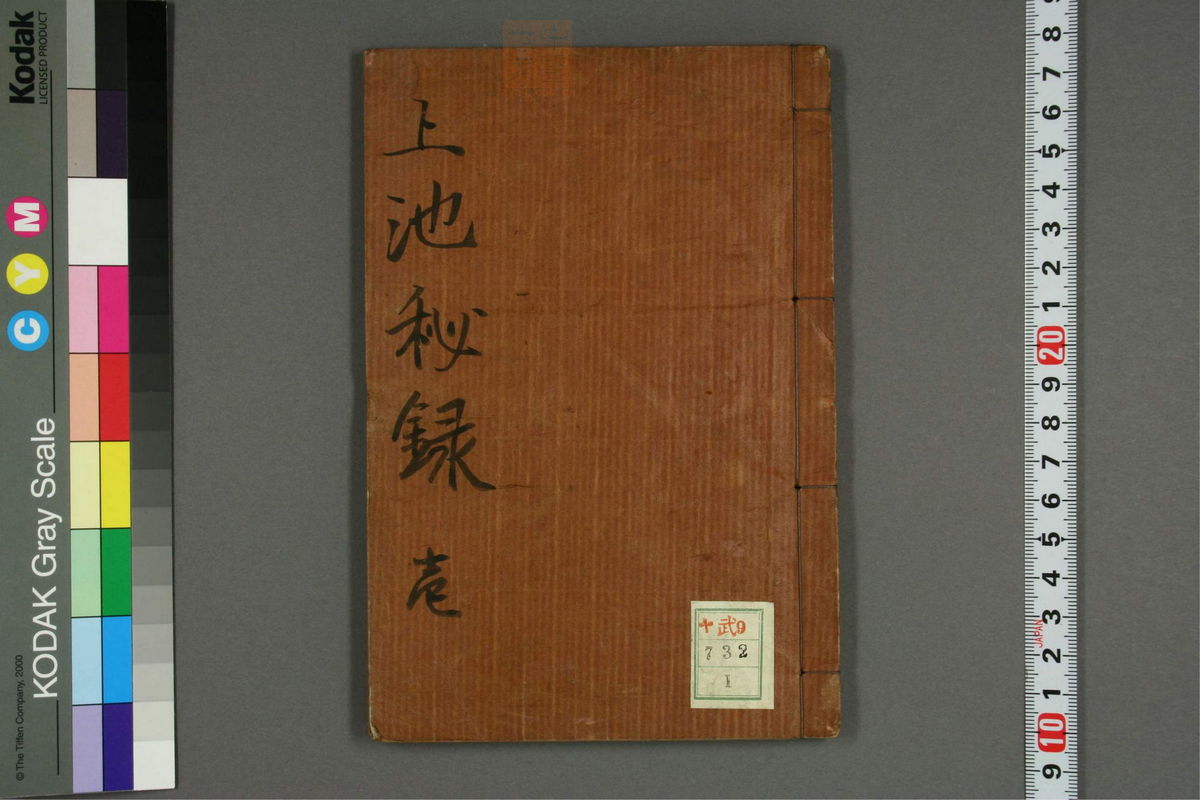 上池秘録 壱
十 武9
732
1
Kodak
LICENSED PRODUCT
C Y M
KODAK Gray Scale
© The Tiffen Company, 2000
8
7
6
5
4
3
2
1
20
9
8
7
6
5
4
3
2
1
10
9
JAPAN